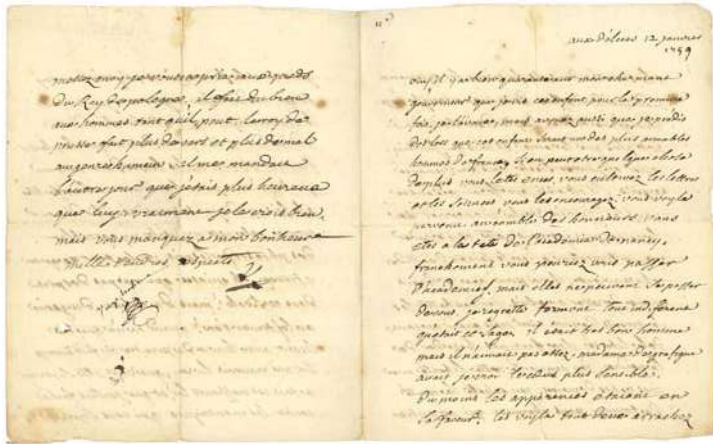 mettez moy je vous en prie aux pieds
du Roy de pologne, il fait du bien
aux hommes tant quil peut. le roy de
prusse fait plus de vers et plus de mal
au genre humain. il me mandait
l'autre jour que j'etais plus heureux
que luy, vraiment je le crois bien,
mais vous manquez a mon bonheur
mille tendres respects
V
aux Délices 12 janvier
1759
ouy il y a bien quarante ans mon charmant
gouverneur que je vis cet enfant pour la premiere
fois, je l'avoue, mais avouez aussi que je prédis
des lors que cet enfant serait un des plus aimables
hommes de france. si on peut etre quelque chose
de plus vous l'etes encor. vous cultivez les lettres
et les sciences vous les encouragez. vous voyla
parvenu au comble des honneurs. vous
etes a la tete de l'academie de nancy.
franchement vous pouriez vous passer
d'academies, mais elles ne peuvent se passer
de vous. je regrette formont tout indiferent
quetait ce sage. il était tres bon homme
mais il n'aimait pas assez. madame de grafigny
avait je croi le coeur plus sensible.
du moins les apparences étaient en
sa faveur. les voyla tout deux arrachez